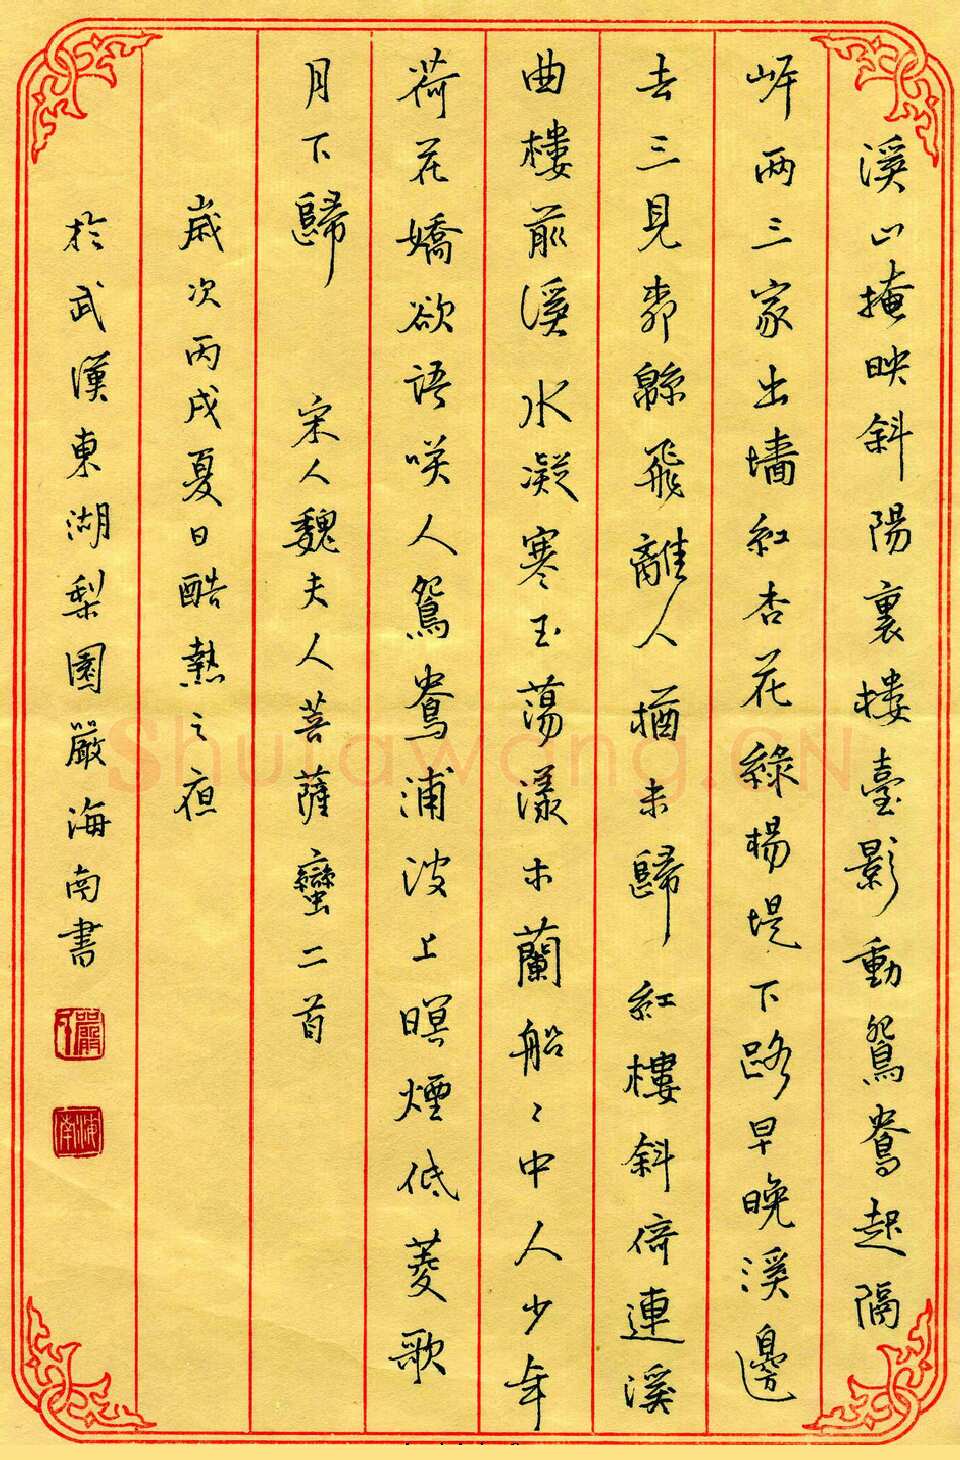 溪山掩映斜陽裏樓臺影動鴛鴦起隔
岸两三家出墻紅杏花綠楊堤下路早晚溪邊
去三見柳緜飛離人猶未歸紅樓斜倚連溪
曲樓前溪水凝寒玉蕩漾木蘭船〻中人少年
荷花嬌欲語咲人鴛鴦浦波上暝煙低菱歌
月下歸 宋人魏夫人菩薩蠻二首
歲次丙戌夏日酷熱之夜
於武漢東湖梨園嚴海南書
嚴
海南
Shufawang.CN